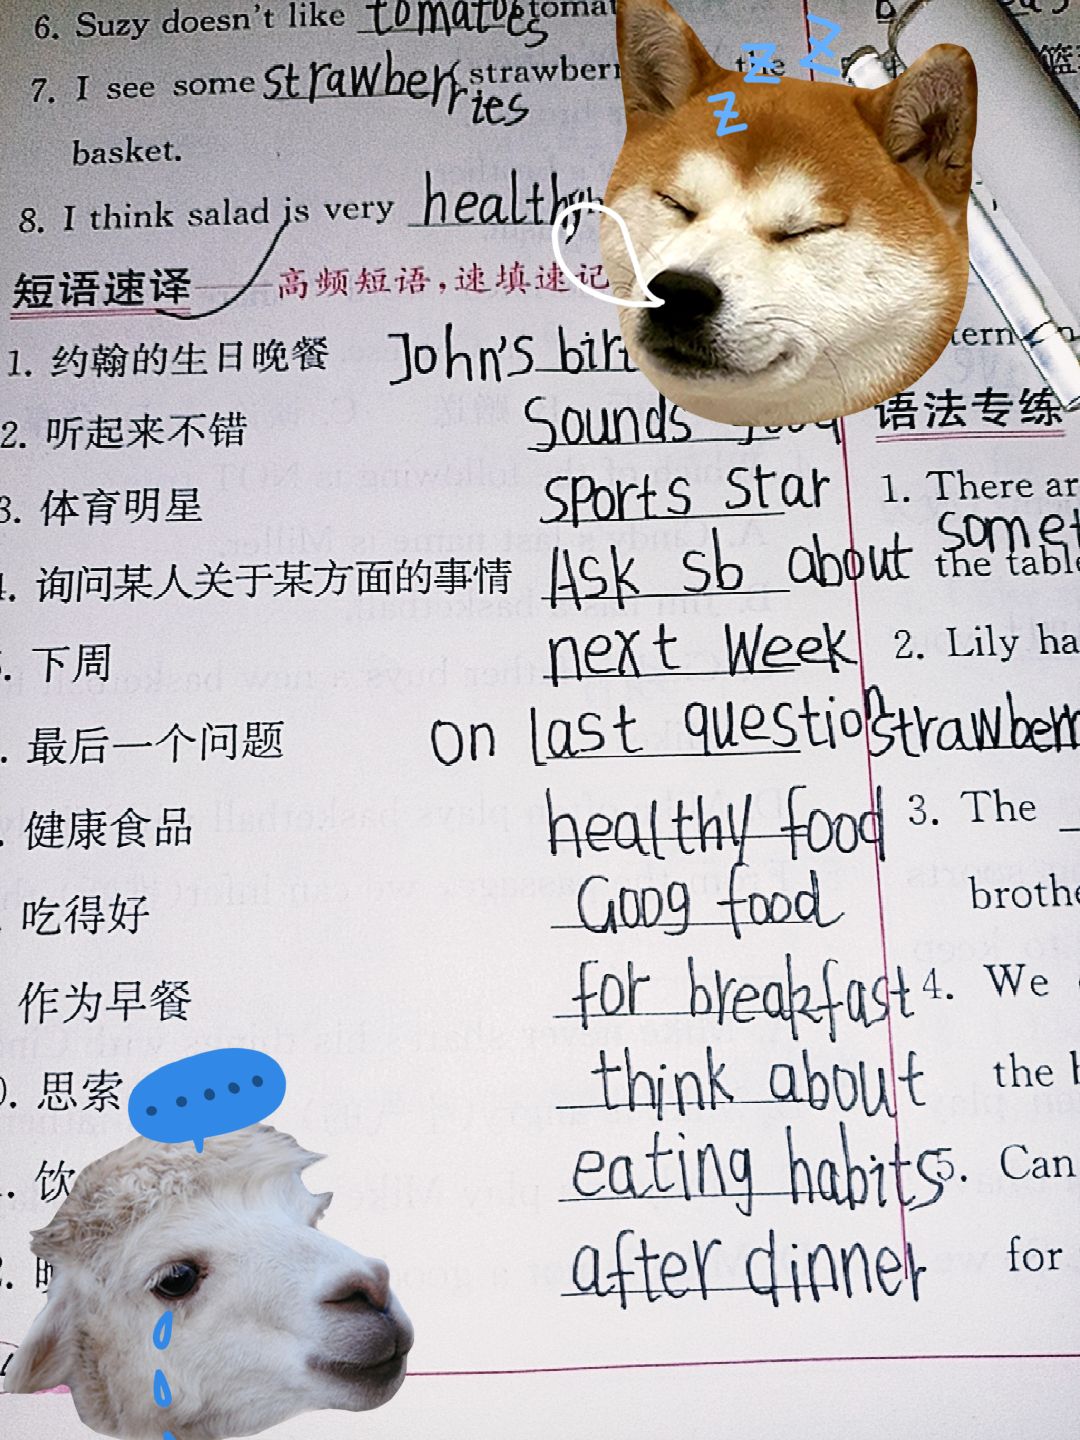 6. Suzy doesn't like tomatoes
7. I see some strawberries
basket.
8. I think salad is very healthy
短语速译——高频短语,速填速记
1. 约翰的生日晚餐 John's
2. 听起来不错 Sounds
3. 体育明星 sports star
询问某人关于某方面的事情 Ask sb about
下周 next week
最后一个问题 on last question
健康食品 healthy food
吃得好 Goog food
作为早餐 for breakfast
思索 think about
饮 eating habits
after dinner
语法专练
1. There
the table
2. Lily
3. The
4. We
the
5. Can
for